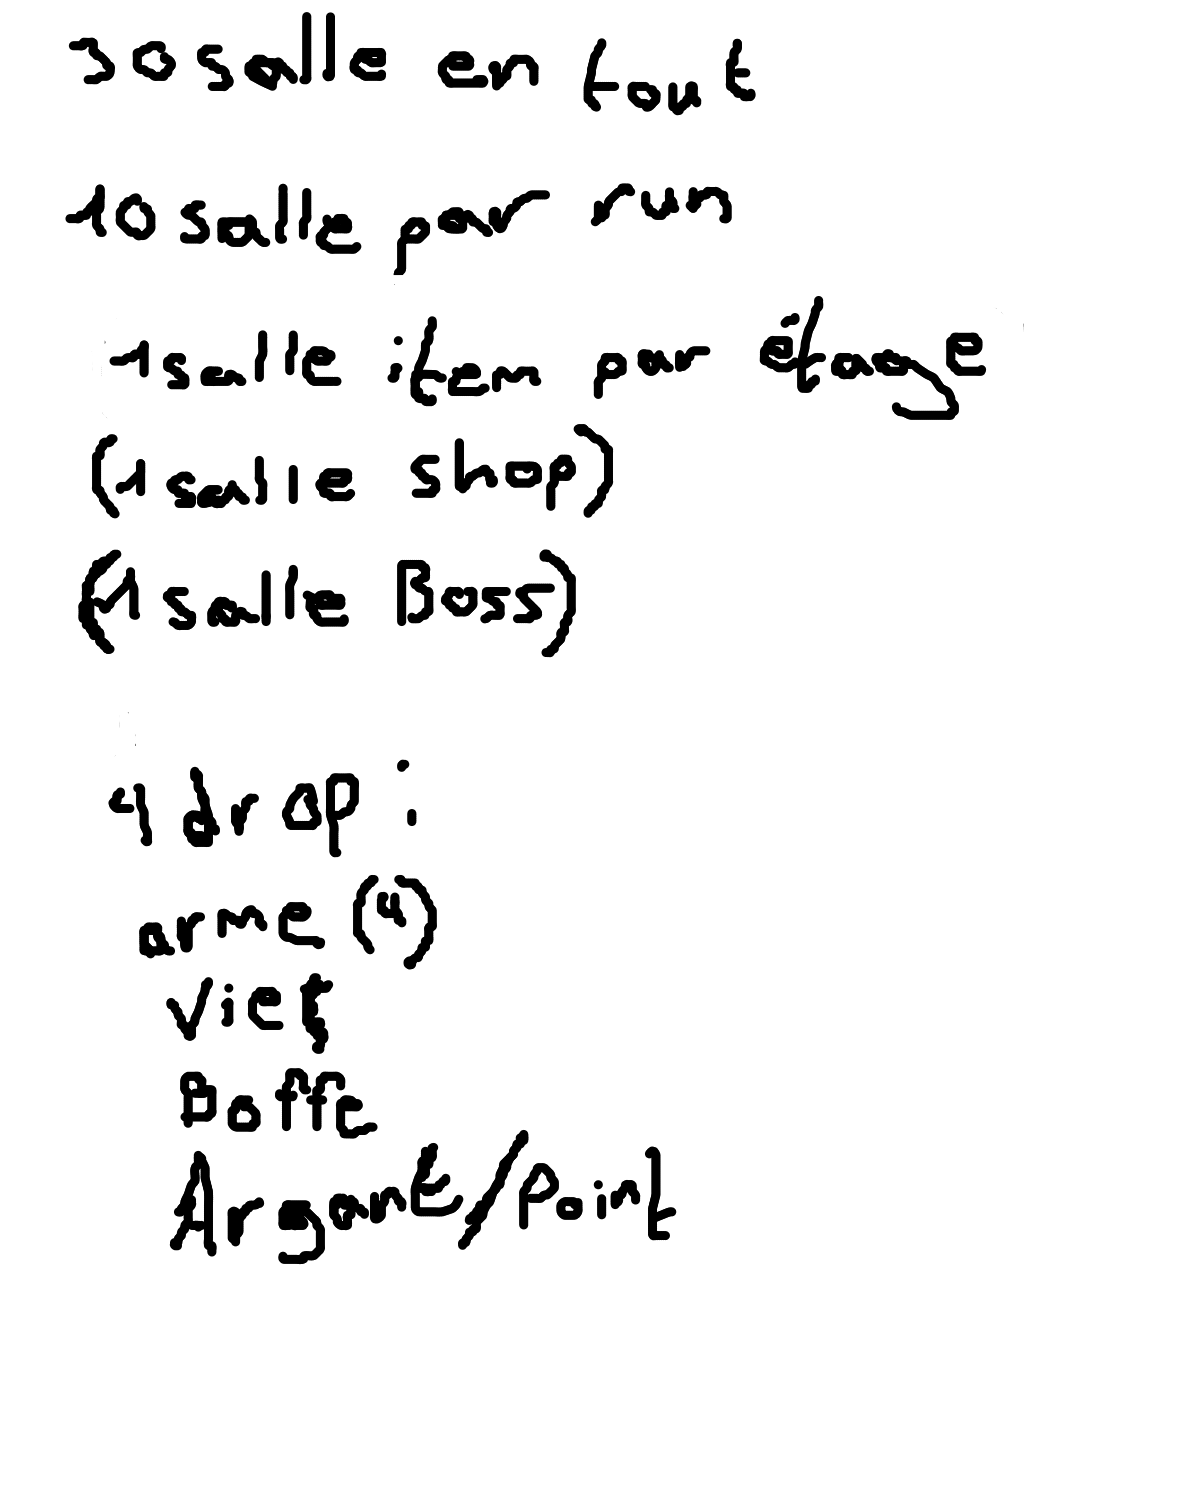 30 salle en tout
10 salle par run
1 salle item par étage
(1 salle shop)
(1 salle Boss)
4 drop :
arme (4)
Vie
Boffe
Argant/Point